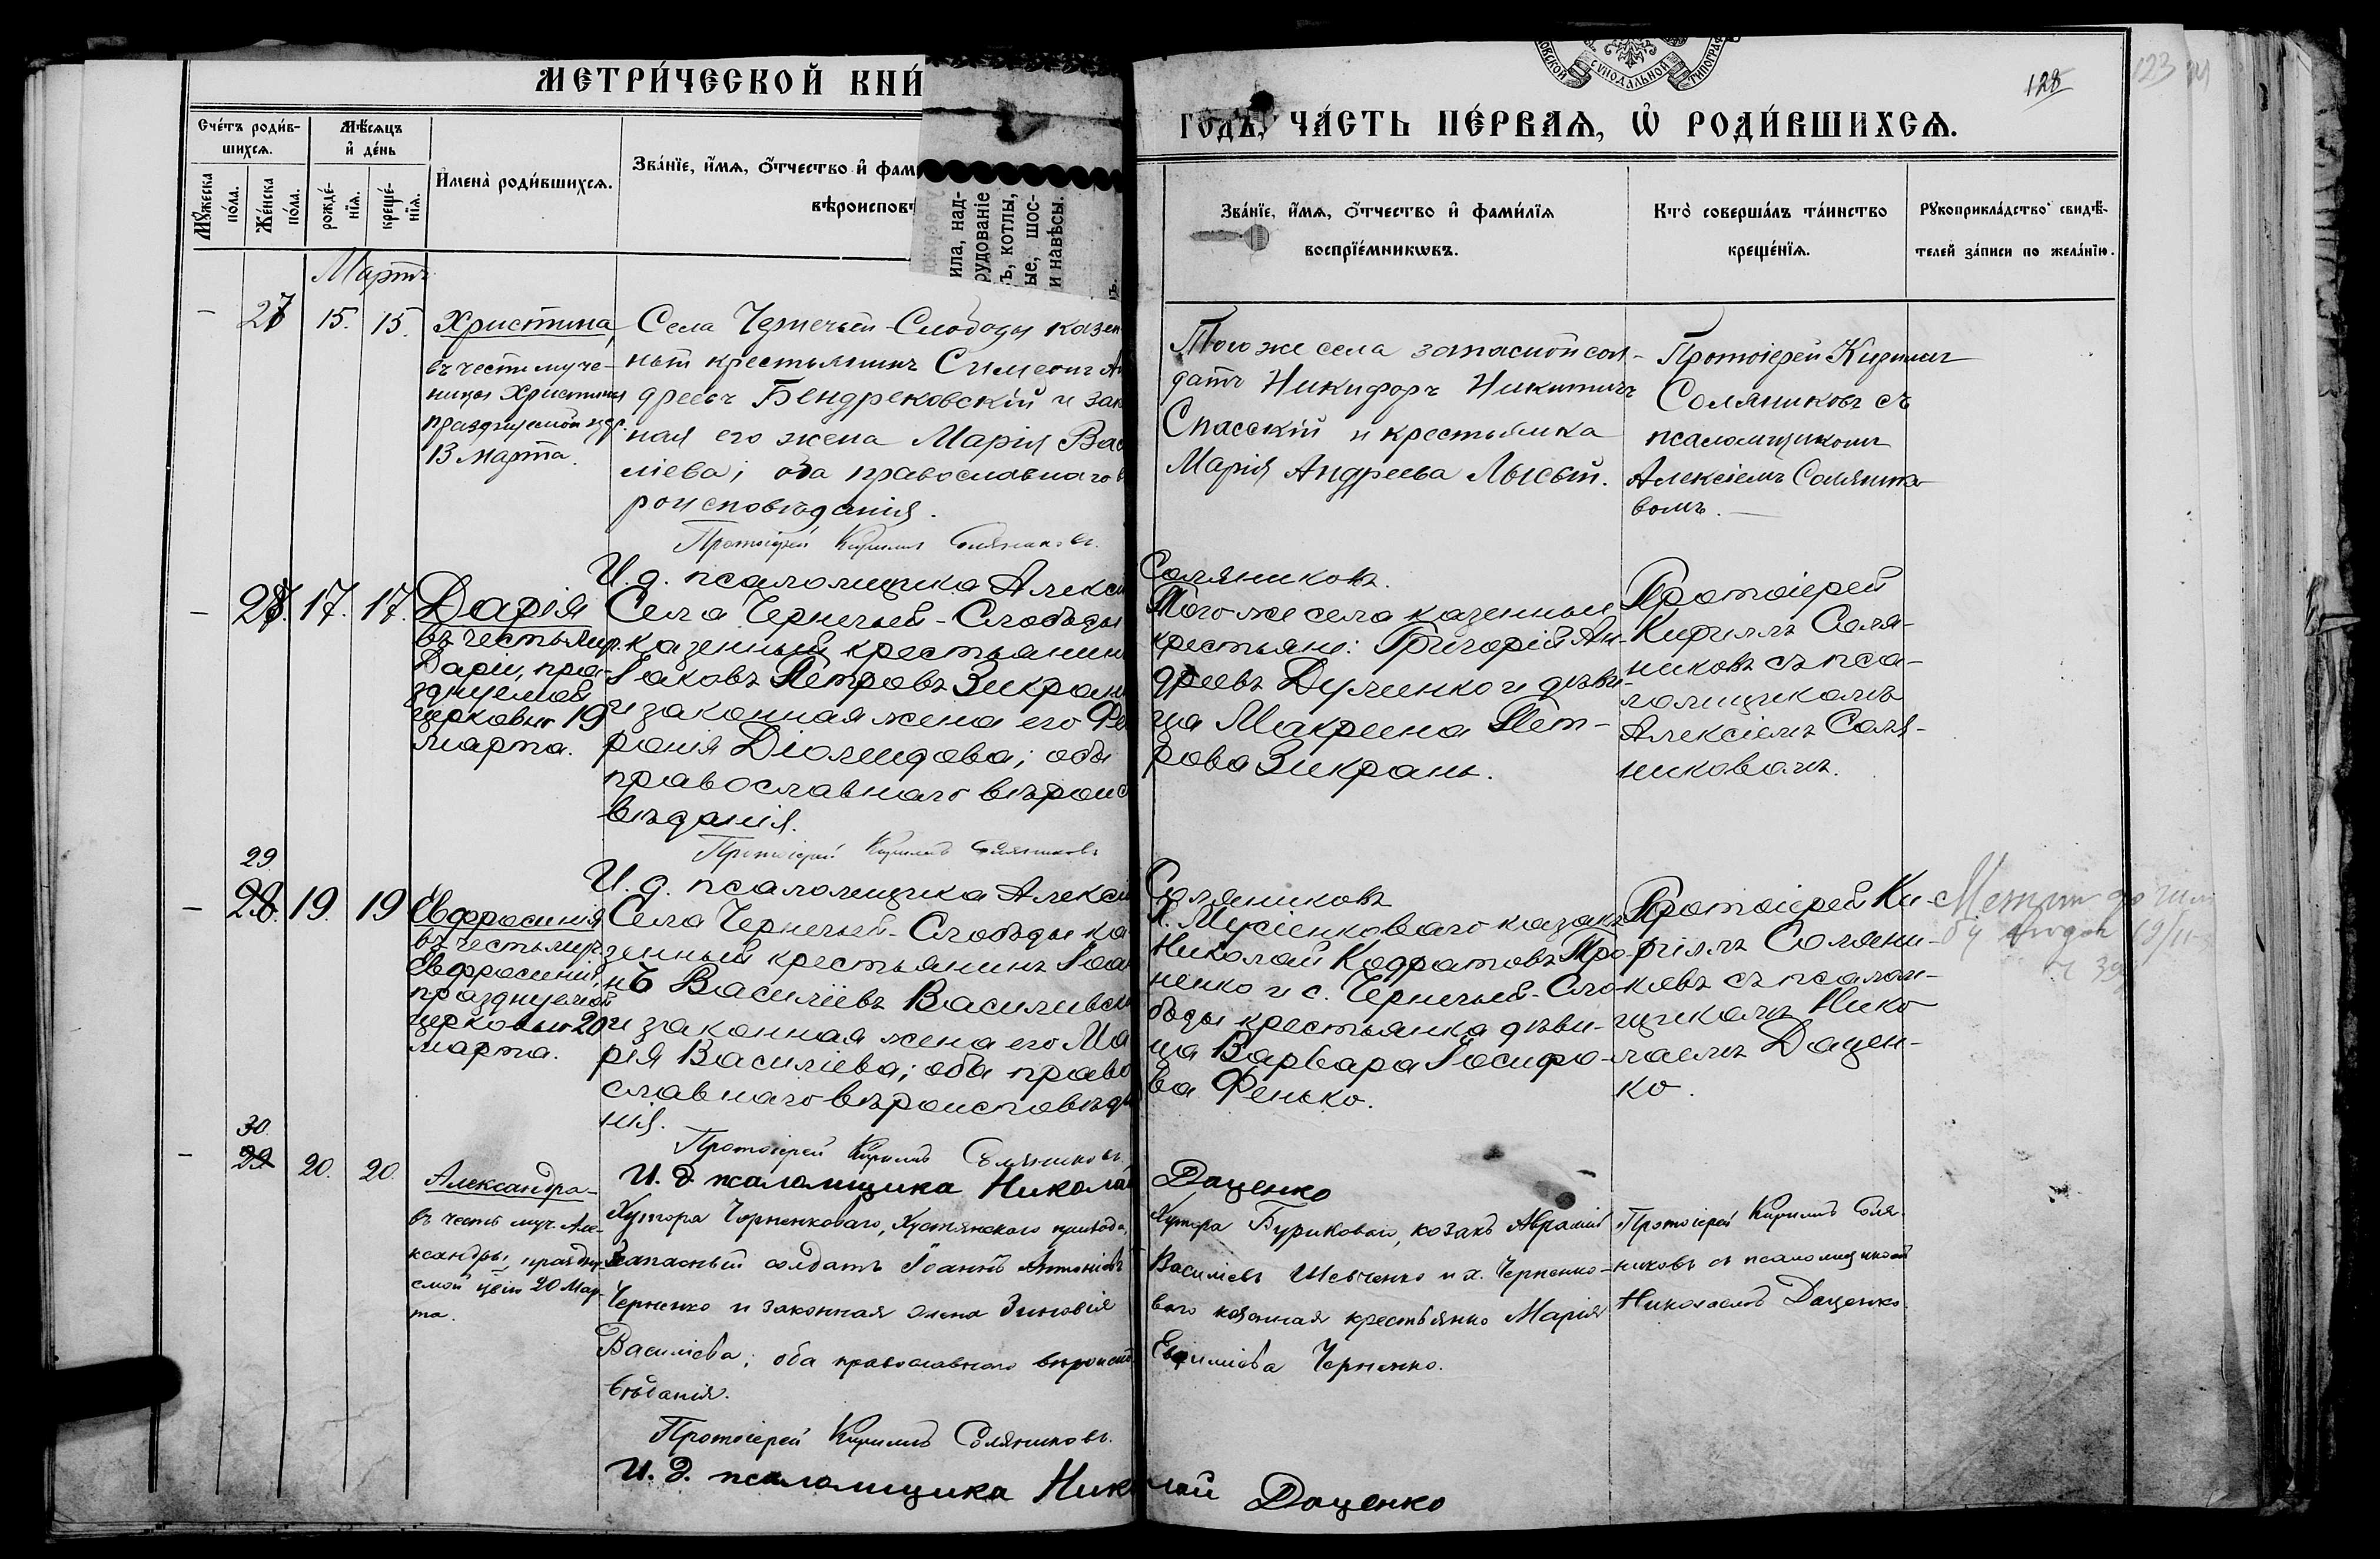 МЕТРИ́ЧЕСКОЙ КНИ́
ГОДЪ, ЧА́СТЬ ПЕ́РВАЯ, Ѡ҆ РОДИ́ВШИХСЯ.
128
123
Сче́тъ роди́в-
шихся.
Мѣ́сяцъ
и҆ де́нь
Мꙋ́жеска
по́ла.
Же́нска
по́ла.
рожде́-
нїя.
креще́-
нїя.
И҆мена̀ роди́вшихся.
Зва́нїе, и҆́мя, о҆́тчество и҆ фам
вѣроисповѣ
ила, над-
рудованіе
ъ, котлы,
ые, шос-
и навѣсы.
Зва́нїе, и҆́мя, о҆́тчество и҆ фами́лїя
воспрїе́мникѡвъ.
Кто̀ соверша́лъ та́инство
креще́нїя.
Рꙋкоприкла́дство свидѣ́-
телей за́писи по жела́нїю.
Мартъ
– 27 15. 15.
Христина,
въ честь муче-
ницы Христины
празднуемой
13 марта.
Села Чернечьей-Слободы казен-
ный крестьянинъ Симеонъ Ан
дреевъ Бендрековскій и закон
ная его жена Марія Васи
ліева; оба православнаго в
роисповѣданія.
Протоіерей Кириллъ Соляниковъ.
И. д. псаломщика Алексій
Того же села запасной сол-
датъ Никифоръ Никитичъ
Спасскій и крестьянка
Марія Андреева Лысый.
Соляниковъ.
Протоіерей Кириллъ
Соляниковъ съ
псаломщикомъ
Алексіемъ Солянико-
вомъ.
– 28. 17. 17.
Дарія
въ честь муч.
Даріи, пра-
зднуемой
церковью 19
марта.
Села Чернечьей-Слободы
казенный крестьянинъ
Іаковъ Петровъ Зикрань
и законная жена его Фе
ронія Діомидова; обы
православнаго вѣроиспо
вѣданія.
Протоіерей Кириллъ Соляниковъ
И. д. псаломщика Алексій
Того же села казенные
крестьяне: Григорій Ан-
дреевъ Дуленко и дѣви-
ца Макрина Пет-
рова Зикрань.
Соляниковъ
Протоіерей
Кириллъ Соля-
никовъ съ пса-
ломщикомъ
Алексіемъ Соля-
никовымъ.
29
– 28. 19. 19
Евфросинія
въ честь муч.
Евфросиніи,
празднуемой
церковью 20
марта.
Села Чернечьей-Слободы ка
зенный крестьянинъ Іоан
нъ Василіевъ Василивск
и законная жена его Ма
рія Василіева; оба право
славнаго вѣроисповѣда
нія.
Протоіерей Кириллъ Соляниковъ.
И. д. псаломщика Никола
Х. Мусіенковаго казакъ
Николай Кодратовъ Про-
ненко и с. Чернечьей-Сло-
боды крестьянка дѣви-
ца Варвара Іосифо-
ва Фенько.
Даценко
Протоіерей Ки-
риллъ Соляни-
ковъ съ псалом-
щикомъ Нико-
лаемъ Дацен-
ко.
30
– 29 20. 20.
Александра-
въ честь муч. Але-
ксандры, праздну-
емой цѣю 20 Мар-
та.
Хутора Черненковаго, Хустянскаго прихода,
запасный солдатъ Іоаннъ Антоніевъ
Черненко и законная жена Зиновія
Василіева; оба православнаго вѣроиспо-
вѣданія.
Протоіерей Кириллъ Соляниковъ.
И. д. псаломщика Николай Даценко
Хутора Буриковаго, козакъ Аврамій
Василіевъ Шевченко и х. Черненко-
ваго казенная крестьянка Марія
Евфиміева Черненко.
Протоіерей Кириллъ Соля-
никовъ съ псаломщикомъ
Николаемъ Даценко.